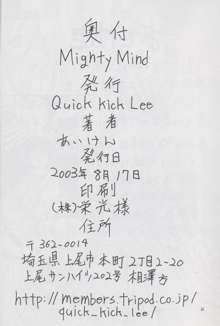 奥付
Mighty Mind
発行
Quick Kick Lee
著者
あいけん
発行日
2003年8月17日
印刷
(株)栄光様
住所
〒362-0014
埼玉県上尾市本町2丁目1-20
上尾サンハイツ202号 相澤方
http://members.tripod.co.jp/
quick_kick_lee/